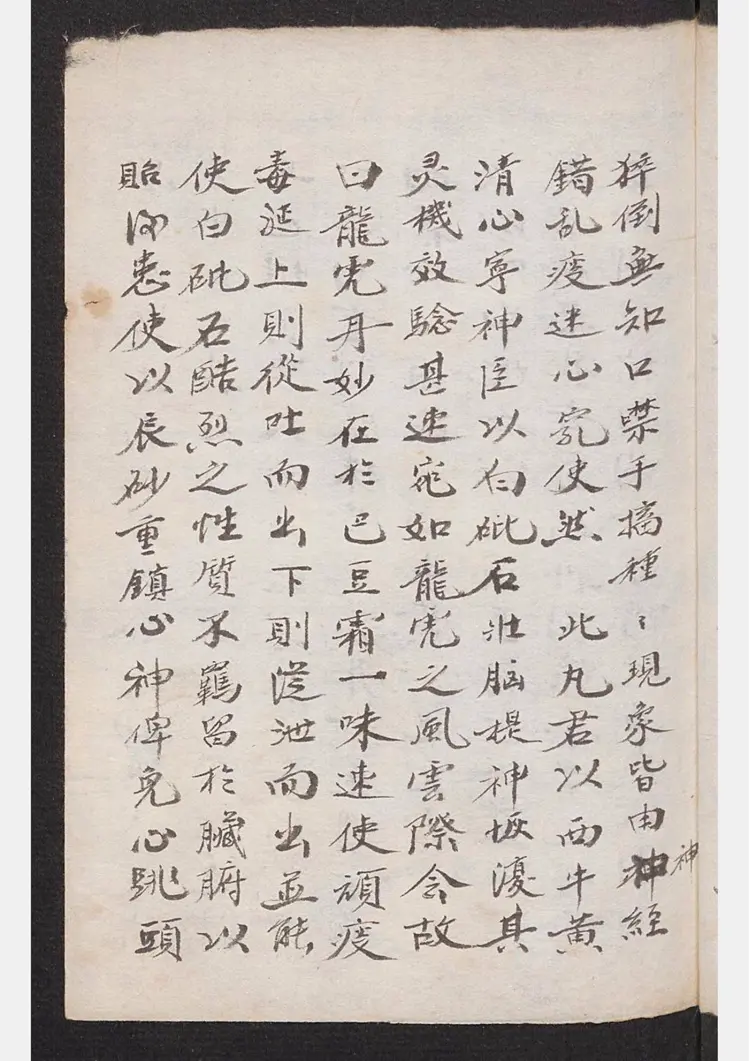 猝倒無知口噤手搐種〻現象皆由神經
錯乱痰迷心竅使然　此丸君以西牛黃
清心寧神臣以白砒石壯脑提神恢復其
灵機效騐甚速宛如龍虎之風雲際會故
曰龍虎丹妙在於巴豆霜一味速使頑痰
毒涎上則從吐而出下則從泄而出並能
使白砒石酷烈之性質不羈留於臟腑以
貽後患使以辰砂重鎮心神俾免心跳頭